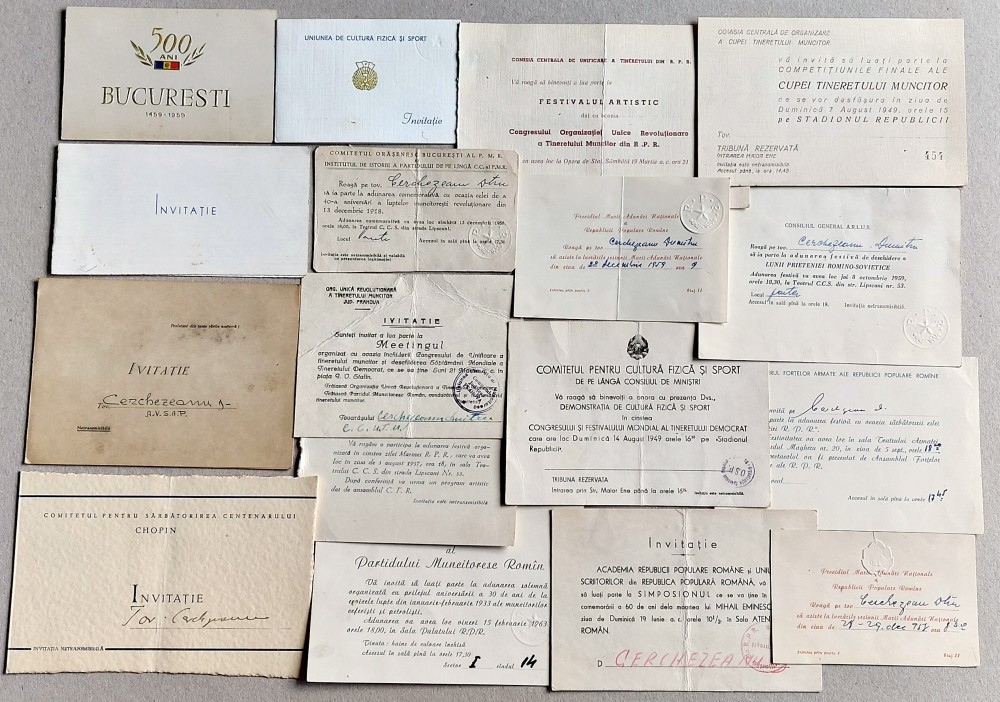 500
ANI
BUCUREȘTI
1459-1959
UNIUNEA DE CULTURĂ FIZICĂ ȘI SPORT
Invitație
COMISIA CENTRALĂ DE UNIFICARE A TINERETULUI DIN R. P. R.
Vă roagă să binevoiți a lua parte la
FESTIVALUL ARTISTIC
dat cu ocazia
Congresului Organizației Unice Revoluționare
a Tineretului Muncitor din R. P. R.
en avea loc la Opera de Stat, Sâmbătă 19 Martie a. c. ora 21
COMISIA CENTRALĂ DE ORGANIZARE
A CUPEI TINERETULUI MUNCITOR
vă invită să luați parte la
COMPETIȚIUNILE FINALE ALE
CUPEI TINERETULUI MUNCITOR
ce se vor desfășura în ziua de
Duminică 7 August 1949, orele 15
pe STADIONUL REPUBLICII
Tov.
TRIBUNĂ REZERVATĂ
INTRAREA MAIOR ENE
Invitația este netransmisibilă
Accesul până la ora 14,45
454
INVITAȚIE
COMITETUL ORĂȘENESC BUCUREȘTI AL P. M. R.
INSTITUTUL DE ISTORIE A PARTIDULUI DE PE LÎNGĂ C.C. al P.M.R.
Roagă pe tov. Cerchezeanu Dtru
să ia parte la adunarea comemorativă cu ocazia celei de a
40-a aniversări a luptelor muncitorești revoluționare din
13 decembrie 1918.
Adunarea comemorativă va avea loc sîmbătă 13 decembrie 1958,
orele 18,00, la Teatrul C. C. S. din strada Lipscani.
Locul
Accesul în sală pînă la orele 17,30
Invitația este netransmisibilă și valabilă
cu prezentarea legitimației
Prezidiul Marii Adunări Naționale
a
Republicii Populare Romîne
Roagă pe tov. Cerchezeanu Dumitru
să asiste la lucrările sesiunii Marii Adunări Naționale
din ziua de 28 decembrie 1959 ora 9
Intrarea prin poarta
Staj II
CONSILIUL GENERAL A.R.L.U.S.
Roagă pe tov. Cerchezeanu Dumitru
să ia parte la adunarea festivă de deschidere a
LUNII PRIETENIEI ROMINO-SOVIETICE
Adunarea festivă va avea loc joi 8 octombrie 1959,
orele 18,30, la Teatrul C.C.S. din str. Lipscani nr. 53.
Locul
Accesul în sală pînă la orele 18.
Invitația netransmisibilă.
INVITATIE
Tov. Cerchezeanu D-
A.V.S.A.P.
Netransmisibilă
ORG. UNICĂ REVOLUȚIONARĂ
A TINERETULUI MUNCITOR
JUD. PRAHOVA
INVITAȚIE
Sunteți invitat a lua parte la
Meetingul
organizat cu ocazia închiderii Congresului de Unificare a
tineretului muncitor și desfășurării Săptămânii Mondiale a
Tineretului Democrat, ce se va ține Luni 21
piața I. O. Stalin.
Trăiască Organizația Unică Revoluționară a Tineretului
Trăiască Partidul Muncitoresc Român, conducătorul
tineretului muncitor.
Tovarășului Cerchezeanu Dumitru
C.C.U.T.M.
COMITETUL PENTRU CULTURĂ FIZICĂ ȘI SPORT
DE PE LÂNGĂ CONSILIUL DE MINIȘTRI
Vă roagă să binevoiți a onora cu prezența Dvs.,
DEMONSTRAȚIA DE CULTURĂ FIZICĂ ȘI SPORT
în cinstea
CONGRESULUI ȘI FESTIVALULUI MONDIAL AL TINERETULUI DEMOCRAT
care are loc Duminică 14 August 1949 orele 16³⁰ pe „Stadionul
Republicii”
TRIBUNA REZERVATA
Intrarea prin Str. Maior Ene până la orele 15³⁰
Invitația este netransmisibilă
O.S.P.
FORȚELOR ARMATE ALE REPUBLICII POPULARE ROMÎNE
invită pe
parte la adunarea festivă cu ocazia sărbătoririi zilei
R. P. R."
Festivitatea va avea loc în sala Teatrului Armatei
Magheru nr. 20, în ziua de 5 sept., orele 18⁰⁰
va fi prezentat de Ansamblul Forțelor
ale R. P. R.
Accesul în sală pînă la orele 17⁴⁵
Vă rugăm a participa la adunarea festivă organizată
în cinstea zilei Marinei R. P. R., care va avea
loc în ziua de 3 august 1957, ora 18, în sala Teatrului
C. C. S. din strada Lipscani Nr. 53.
După conferință va urma un program artistic
dat de ansamblul C. T. R.
Invitația este netransmisibilă
COMITETUL PENTRU SĂRBĂTORIREA CENTENARULUI
CHOPIN
INVITAȚIE
Tov.
INVITAȚIA NETRANSMISIBILĂ
al
Partidului Muncitoresc Romîn
Vă invită să luați parte la adunarea solemnă
organizată cu prilejul aniversării a 30 de ani de la
eroicele lupte din ianuarie-februarie 1933 ale muncitorilor
ceferiști și petroliști.
Adunarea va avea loc vineri 15 februarie 1963
orele 18,00, în Sala Palatului R.P.R.
Ținuta: haine de culoare închisă
Accesul în sală pînă la orele 17,30
Sector I rîndul 14
Invitație
ACADEMIA REPUBLICII POPULARE ROMÂNE ȘI UNIU
SCRIITORILOR din REPUBLICA POPULARĂ ROMÂNĂ, vă
să luați parte la SIMPOSIONUL ce se va ține în
comemorării a 60 de ani dela moartea lui MIHAIL EMINESC
ziua de Duminică 19 Iunie a. c. orele 10½ în Sala ATEN
ROMÂN.
D CERCHEZEAN
Prezidiul Marii Adunări Naționale
a
Republicii Populare Romîne
Roagă pe tov. Cerchezeanu Dtru
să asiste la lucrările sesiunii Marii Adunări Naționale
din ziua de
Intrarea prin poarta
Staj II